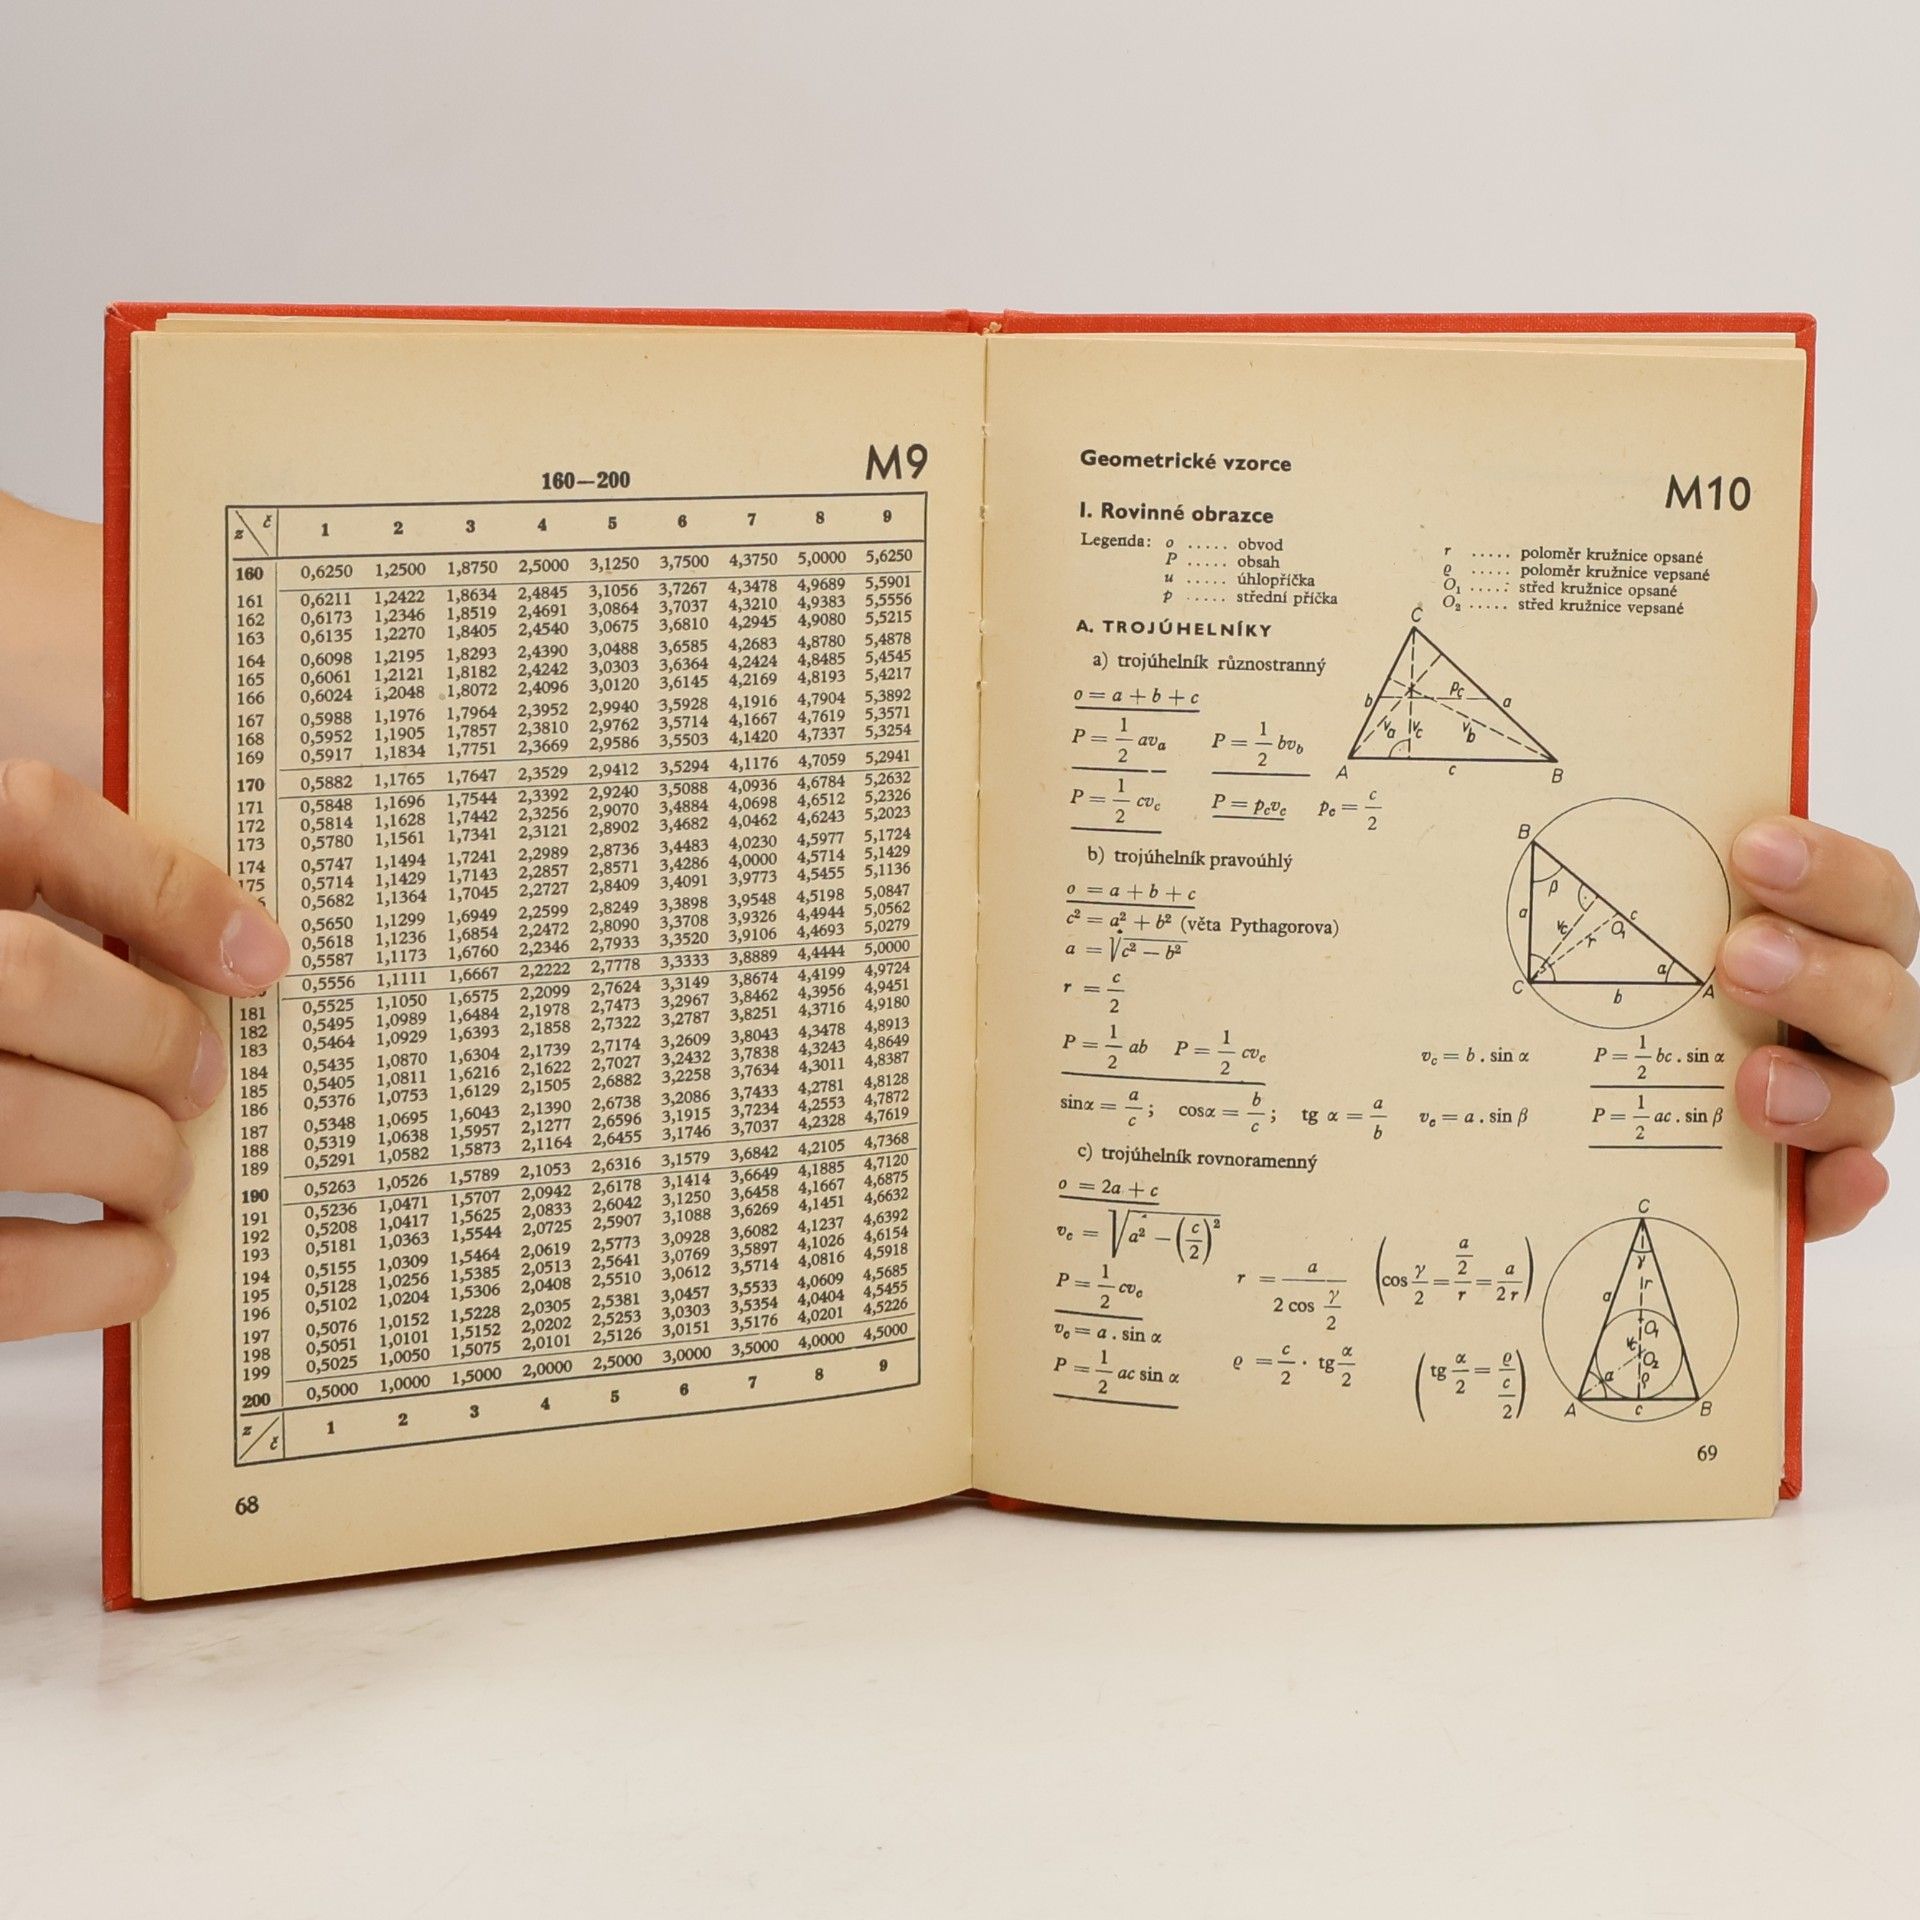 160—200
M9
z č 1 2 3 4 5 6 7 8 9
160 0,6250 1,2500 1,8750 2,5000 3,1250 3,7500 4,3750 5,0000 5,6250
161 0,6211 1,2422 1,8634 2,4845 3,1056 3,7267 4,3478 4,9689 5,5901
162 0,6173 1,2346 1,8519 2,4691 3,0864 3,7037 4,3210 4,9383 5,5556
163 0,6135 1,2270 1,8405 2,4540 3,0675 3,6810 4,2945 4,9080 5,5215
164 0,6098 1,2195 1,8293 2,4390 3,0488 3,6585 4,2683 4,8780 5,4878
165 0,6061 1,2121 1,8182 2,4242 3,0303 3,6364 4,2424 4,8485 5,4545
166 0,6024 1,2048 1,8072 2,4096 3,0120 3,6145 4,2169 4,8193 5,4217
167 0,5988 1,1976 1,7964 2,3952 2,9940 3,5928 4,1916 4,7904 5,3892
168 0,5952 1,1905 1,7857 2,3810 2,9762 3,5714 4,1667 4,7619 5,3571
169 0,5917 1,1834 1,7751 2,3669 2,9586 3,5503 4,1420 4,7337 5,3254
170 0,5882 1,1765 1,7647 2,3529 2,9412 3,5294 4,1176 4,7059 5,2941
171 0,5848 1,1696 1,7544 2,3392 2,9240 3,5088 4,0936 4,6784 5,2632
172 0,5814 1,1628 1,7442 2,3256 2,9070 3,4884 4,0698 4,6512 5,2326
173 0,5780 1,1561 1,7341 2,3121 2,8902 3,4682 4,0462 4,6243 5,2023
174 0,5747 1,1494 1,7241 2,2989 2,8736 3,4483 4,0230 4,5977 5,1724
175 0,5714 1,1429 1,7143 2,2857 2,8571 3,4286 4,0000 4,5714 5,1429
0,5682 1,1364 1,7045 2,2727 2,8409 3,4091 3,9773 4,5455 5,1136
0,5650 1,1299 1,6949 2,2599 2,8249 3,3898 3,9548 4,5198 5,0847
0,5618 1,1236 1,6854 2,2472 2,8090 3,3708 3,9326 4,4944 5,0562
0,5587 1,1173 1,6760 2,2346 2,7933 3,3520 3,9106 4,4693 5,0279
0,5556 1,1111 1,6667 2,2222 2,7778 3,3333 3,8889 4,4444 5,0000
181 0,5525 1,1050 1,6575 2,2099 2,7624 3,3149 3,8674 4,4199 4,9724
182 0,5495 1,0989 1,6484 2,1978 2,7473 3,2967 3,8462 4,3956 4,9451
183 0,5464 1,0929 1,6393 2,1858 2,7322 3,2787 3,8251 4,3716 4,9180
184 0,5435 1,0870 1,6304 2,1739 2,7174 3,2609 3,8043 4,3478 4,8913
185 0,5405 1,0811 1,6216 2,1622 2,7027 3,2432 3,7838 4,3243 4,8649
186 0,5376 1,0753 1,6129 2,1505 2,6882 3,2258 3,7634 4,3011 4,8387
187 0,5348 1,0695 1,6043 2,1390 2,6738 3,2086 3,7433 4,2781 4,8128
188 0,5319 1,0638 1,5957 2,1277 2,6596 3,1915 3,7234 4,2553 4,7872
189 0,5291 1,0582 1,5873 2,1164 2,6455 3,1746 3,7037 4,2328 4,7619
190 0,5263 1,0526 1,5789 2,1053 2,6316 3,1579 3,6842 4,2105 4,7368
191 0,5236 1,0471 1,5707 2,0942 2,6178 3,1414 3,6649 4,1885 4,7120
192 0,5208 1,0417 1,5625 2,0833 2,6042 3,1250 3,6458 4,1667 4,6875
193 0,5181 1,0363 1,5544 2,0725 2,5907 3,1088 3,6269 4,1451 4,6632
194 0,5155 1,0309 1,5464 2,0619 2,5773 3,0928 3,6082 4,1237 4,6392
195 0,5128 1,0256 1,5385 2,0513 2,5641 3,0769 3,5897 4,1026 4,6154
196 0,5102 1,0204 1,5306 2,0408 2,5510 3,0612 3,5714 4,0816 4,5918
197 0,5076 1,0152 1,5228 2,0305 2,5381 3,0457 3,5533 4,0609 4,5685
198 0,5051 1,0101 1,5152 2,0202 2,5253 3,0303 3,5354 4,0404 4,5455
199 0,5025 1,0050 1,5075 2,0101 2,5126 3,0151 3,5176 4,0201 4,5226
200 0,5000 1,0000 1,5000 2,0000 2,5000 3,0000 3,5000 4,0000 4,5000
z č 1 2 3 4 5 6 7 8 9
68
Geometrické vzorce
M10
I. Rovinné obrazce
Legenda: o ..... obvod r ..... poloměr kružnice opsané
P ..... obsah ϱ ..... poloměr kružnice vepsané
u ..... úhlopříčka O₁ ..... střed kružnice opsané
p ..... střední příčka O₂ ..... střed kružnice vepsané
A. TROJÚHELNÍKY
a) trojúhelník různostranný
o = a + b + c
P = 1/2 avₐ P = 1/2 bv_b
P = 1/2 cv_c P = p_cv_c p_c = c/2
C b p_c a vₐ v_c v_b A c B
b) trojúhelník pravoúhlý
o = a + b + c
c² = a² + b² (věta Pythagorova)
a = √(c² − b²)
r = c/2
B β a v_c r c O₁ α C b A
P = 1/2 ab P = 1/2 cv_c v_c = b . sin α P = 1/2 bc . sin α
sinα = a/c ; cosα = b/c ; tg α = a/b v_c = a . sin β P = 1/2 ac . sin β
c) trojúhelník rovnoramenný
o = 2a + c
v_c = √(a² − (c/2)²)
P = 1/2 cv_c r = a/(2 cos γ/2) (cos γ/2 = (a/2)/r = a/2r)
v_c = a . sin α
P = 1/2 ac sin α ϱ = c/2 . tg α/2 (tg α/2 = ϱ/(c/2))
C γ r a O₁ v_c O₂ α ϱ A c B
69